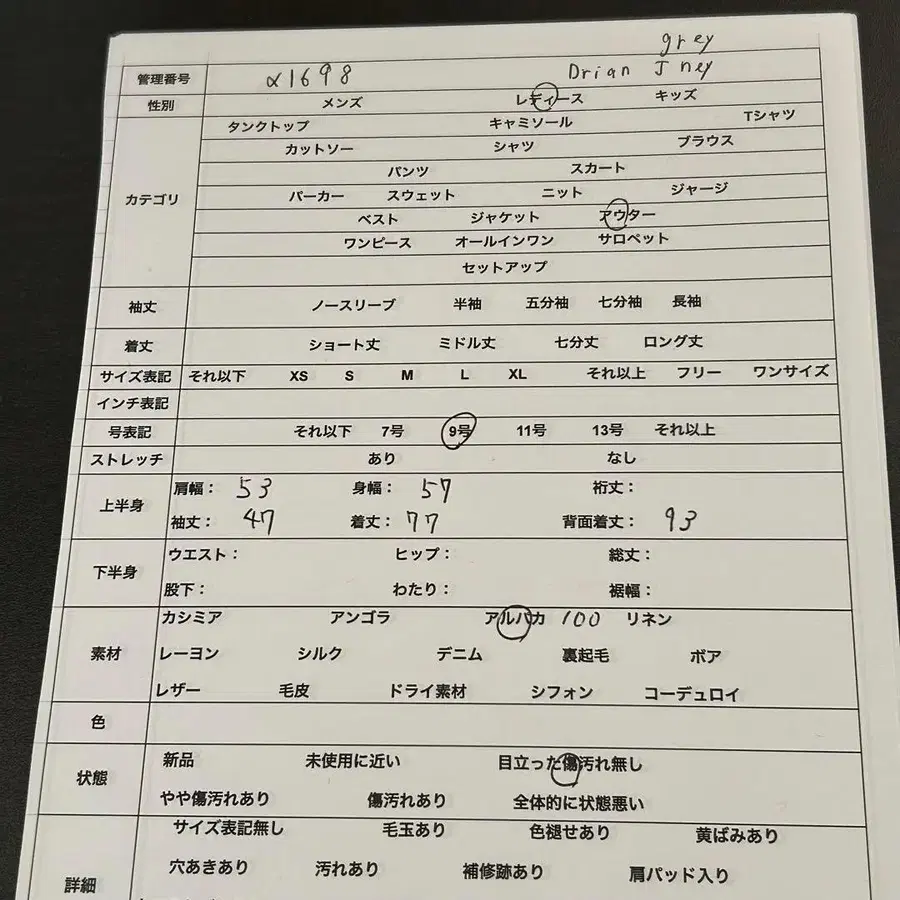 grey
管理番号 α1698 Drian Jney
性別 メンズ レディース キッズ
タンクトップ キャミソール Tシャツ
カットソー シャツ ブラウス
パンツ スカート
カテゴリ パーカー スウェット ニット ジャージ
ベスト ジャケット アウター
ワンピース オールインワン サロペット
セットアップ
袖丈 ノースリーブ 半袖 五分袖 七分袖 長袖
着丈 ショート丈 ミドル丈 七分丈 ロング丈
サイズ表記 それ以下 XS S M L XL それ以上 フリー ワンサイズ
インチ表記
号表記 それ以下 7号 9号 11号 13号 それ以上
ストレッチ あり なし
上半身 肩幅： 53 身幅： 57 裄丈：
袖丈： 47 着丈： 77 背面着丈： 93
下半身 ウエスト： ヒップ： 総丈：
股下： わたり： 裾幅：
カシミア アンゴラ アルパカ 100 リネン
素材 レーヨン シルク デニム 裏起毛 ボア
レザー 毛皮 ドライ素材 シフォン コーデュロイ
色
状態 新品 未使用に近い 目立った傷汚れ無し
やや傷汚れあり 傷汚れあり 全体的に状態悪い
サイズ表記無し 毛玉あり 色褪せあり 黄ばみあり
詳細 穴あきあり 汚れあり 補修跡あり 肩パッド入り